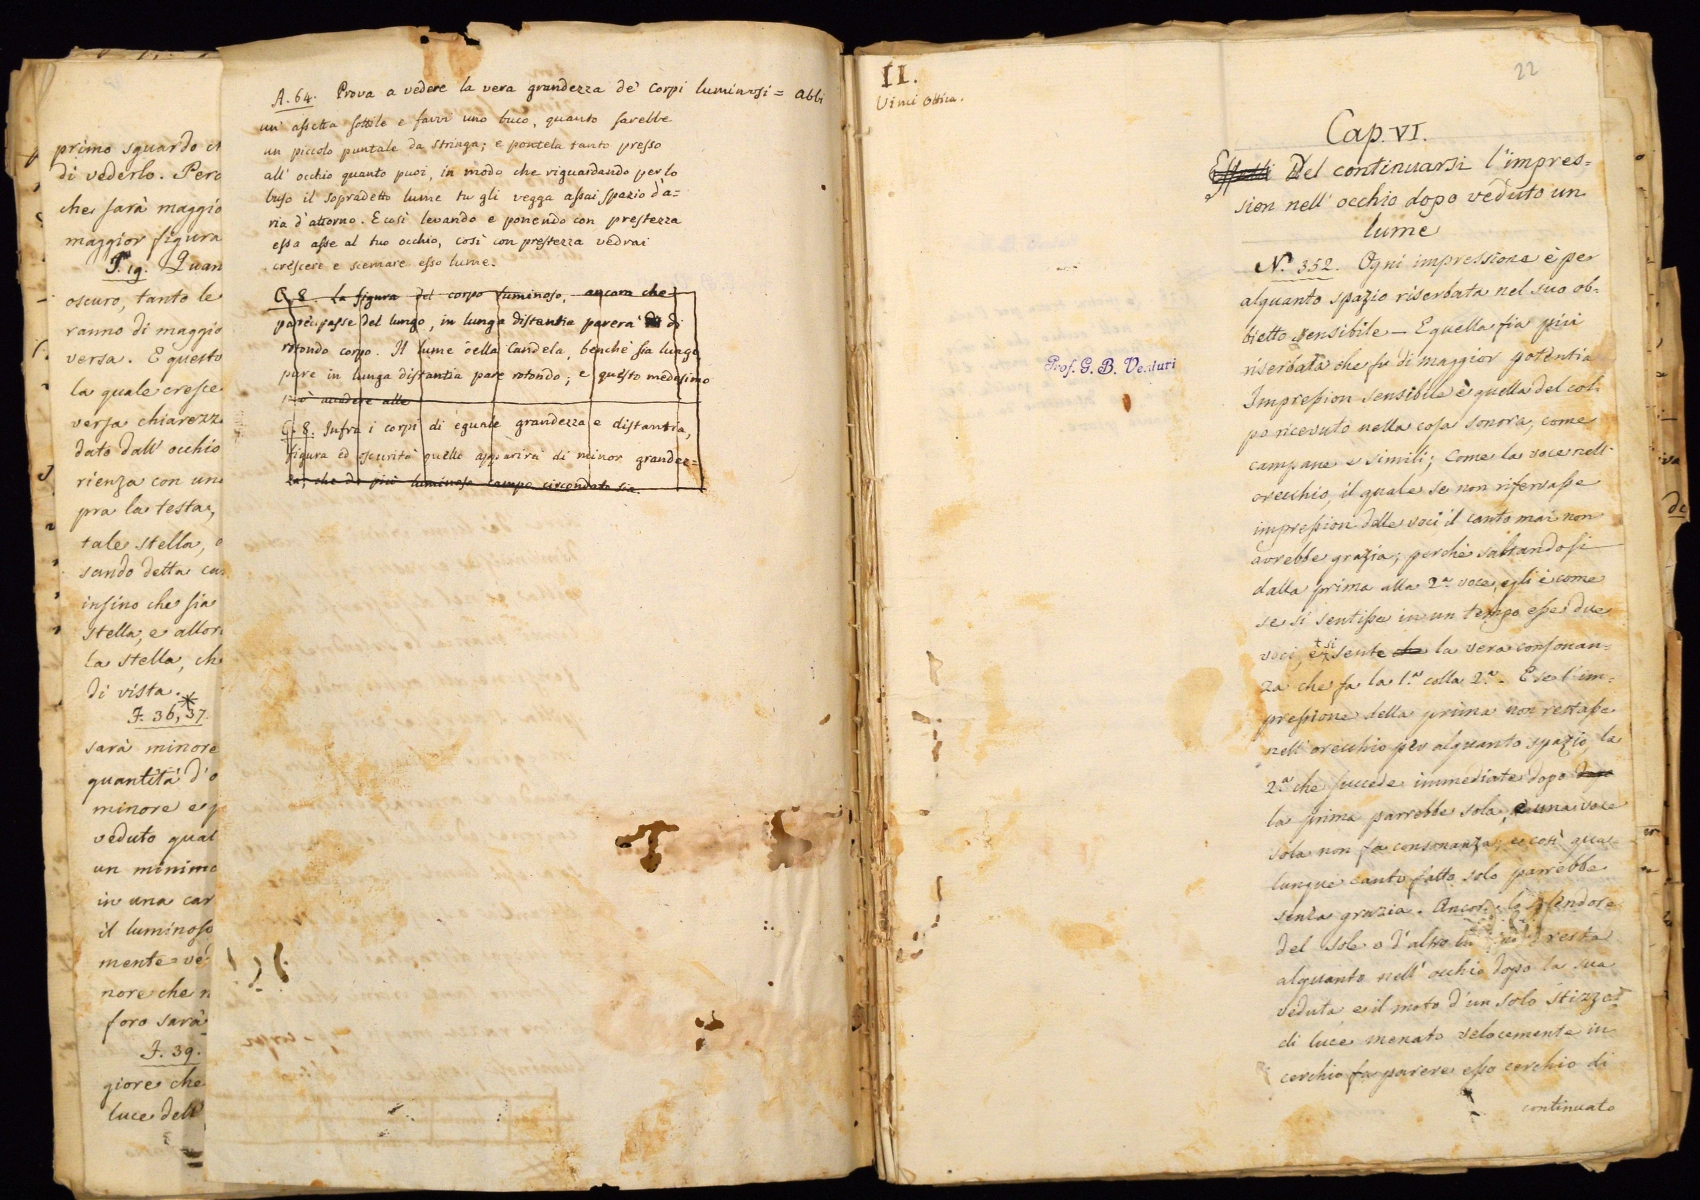 primo sguardo
di vederlo. Però
che sarà maggio
maggior figura
F. 19. Quan
oscuro, tanto le
ranno di maggio
versa. E questo
la quale cresce
versa chiarezz
dato dall' occhio
rienza con un
pra la testa,
tale stella,
sando detta
insino che sia
stella, e allor
la stella, che
di vista.
F. 36, 37.
sarà minore
quantità d'o
minore e
veduto qual
un minimo
in una car
il luminoso
mente ve
nore che n
foro sarà
F. 39.
giore che
luce dell'
A. 64. Prova a vedere la vera grandezza de' corpi luminosi = Abbi
un' assetta sottile e favvi uno buco, quanto sarebbe
un piccolo puntale da stringa; e pontela tanto presso
all' occhio quanto puoi, in modo che riguardando per lo
buso il sopradetto lume tu gli vegga assai spazio d'a=
ria d'attorno. E così levando e ponendo con prestezza
essa asse al tuo occhio, così con prestezza vedrai
crescere e scemare esso lume.
C. 8. La figura del corpo luminoso, ancora che
participasse del lungo, in lunga distantia parerà di
rotondo corpo. Il lume della Candela, benchè sia lungo,
pure in lunga distantia pare rotondo; e questo medesimo
può accadere alle
C. 8. Infra i corpi di eguale grandezza e distantia,
figura ed oscurità quelli apparirà di minor grandez=
za, che da più luminoso campo circondato sia.
II.
Vinci Ottica.
Prof. G. B. Venturi
22
Cap. VI.
Effetti Del continuarsi l'impres=
sion nell' occhio dopo veduto un
lume
N. 352. Ogni impressione è per
alquanto spazio riserbata nel suo ob-
bietto sensibile — E quella fia più
riserbata che fu di maggior potentia
Impression sensibile è quella del col-
po ricevuto nella cosa sonora, come
campane e simili; Come la voce nell'
orecchio, il quale se non riservasse
impression delle voci il canto mai non
avrebbe grazia; perchè saltandosi
dalla prima alla 2.ª voce, egli è come
se si sentisse in un tempo esse due
voci, e si sente che la vera consonan=
za che fa la 1.ª colla 2.ª. E se l'im-
pressione della prima non restasse
nell' orecchio per alquanto spazio, la
2.ª che succede immediate dopo
la prima parrebbe sola, e una voce
sola non fa consonanza, e così qua-
lunque canto fatto solo parrebbe
senza grazia. Ancor lo splendore
del sole o d'altro resta
alquanto nell' occhio dopo la sua
veduta e il moto d'un solo stizzo
di luce menato velocemente in
cerchio fa parere esso cerchio di
continuato